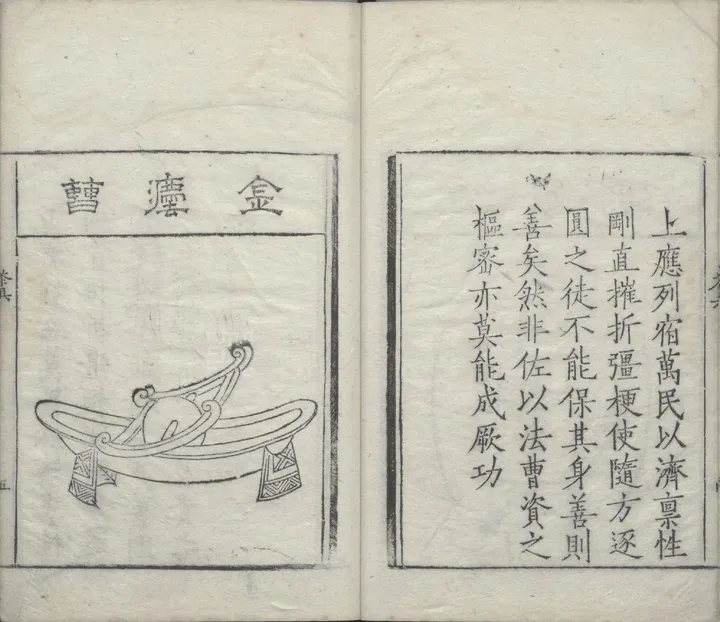 上應列宿萬民以濟禀性
剛直摧折彊梗使隨方逐
圓之徒不能保其身善則
善矣然非佐以法曹資之
樞密亦莫能成厥功
金灋曹
茶具
五